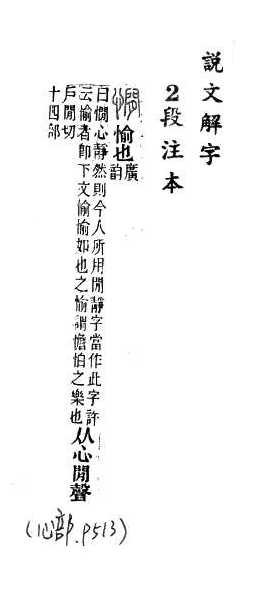 說文解字
2段注本
憪
愉也
廣
韵
曰憪心靜然則今人所用閒靜字當作此字許
云愉者即下文愉愉如也之愉謂憺怕之樂也
从心閒聲
戶閒切
十四部
(心部.P513)